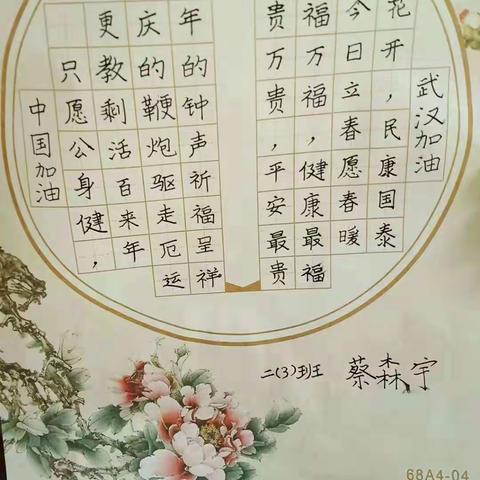 武汉加油
花开，民康国泰
今日立春愿春暖
福万福，健康最福
贵万贵，平安最贵
年的钟声祈福呈祥
庆的鞭炮驱走厄运
更教剩活百来年
只愿公身健，
中国加油
二(3)班 蔡森宇
68A4-04